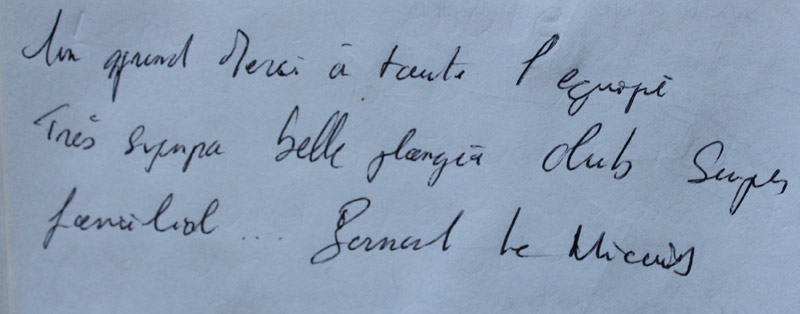 Un grand Merci à toute l'equipe
Très sympa belle plongée club Super
familial .... Bernard Le